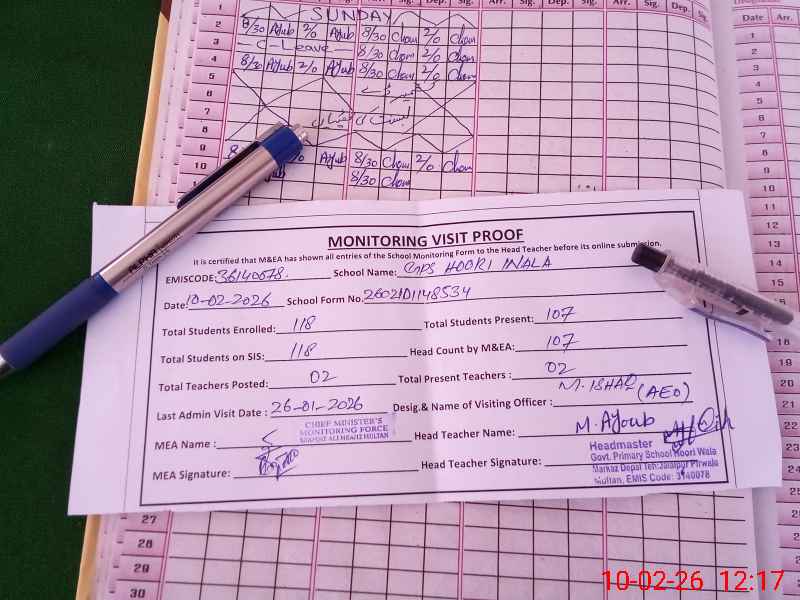 Arr. Sig. Dep. Sig. Arr. Sig. Dep. Sig.
Date Arr.
1 SUNDAY
2 8/30 Ayub 2/0 Ayub 8/30 Chom 2/0 Chom
3 - C - Leave - 8/30 Chom 2/0 Chom
4 8/30 Ayub 2/0 Ayub 8/30 Chom 2/0 Chom
5
6
7
8
9
10 Ayub 8/30 Chom 2/0 Chom
8/30 Chom
MONITORING VISIT PROOF
It is certified that M&EA has shown all entries of the School Monitoring Form to the Head Teacher before its online submission.
EMISCODE: 36140078. School Name: GPS HOORI WALA
Date: 10-02-2026 School Form No. 2602101148534
Total Students Enrolled: 118 Total Students Present: 107
Total Students on SIS: 118 Head Count by M&EA: 107
Total Teachers Posted: 02 Total Present Teachers : 02
Last Admin Visit Date : 26-01-2026 Desig.& Name of Visiting Officer : M. ISHAQ (AEO)
CHIEF MINISTER'S
MONITORING FORCE
MEA Name : Head Teacher Name: M. Ayoub
MEA Signature: Head Teacher Signature:
Headmaster
Govt. Primary School Hoori Wala
Markaz Depal Teh: Jalalpur Pirwala
Multan, EMIS Code: 3140078
27
28
29
30
10-02-26 12:17